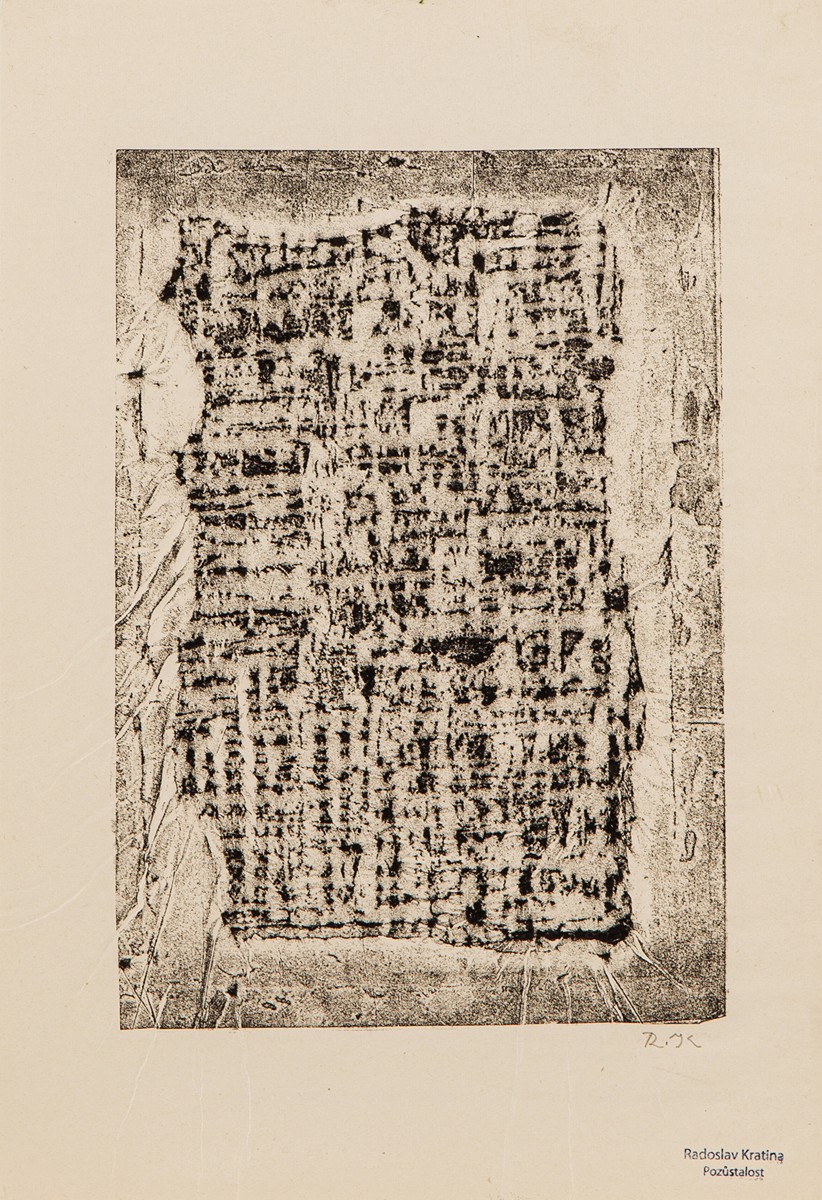 R.K
Radoslav Kratina
Pozůstalost